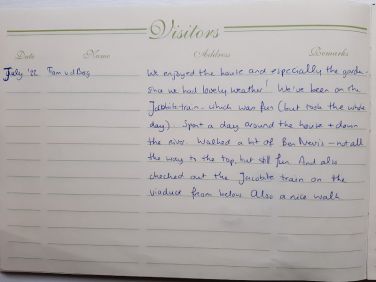 Visitors
Date Name Address Remarks
July '22 Fam vd Berg We enjoyed the house and especially the garden
since we had lovely weather! We've been on the
Jacobite train - which was fun (but took the whole
day). Spent a day around the house + down
the river. Walked a bit of Ben Nevis - not all
the way to the top, but still fun. And also
checked out the Jacobite train on the
viaduct from below. Also a nice walk